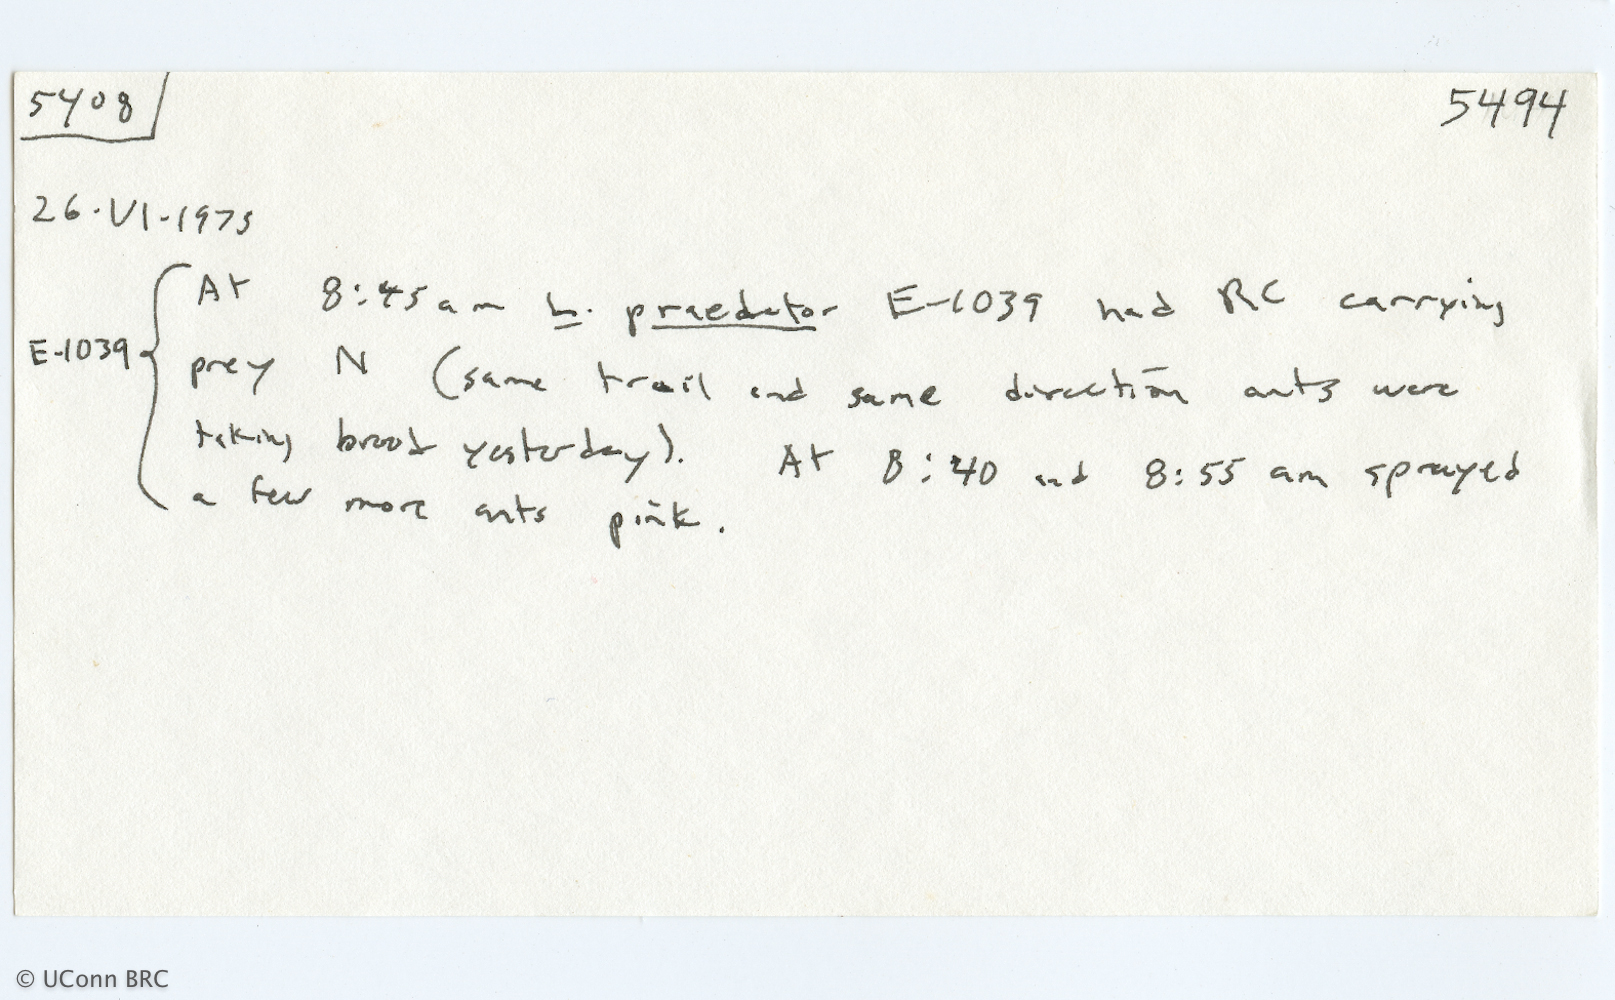 5408
5494
26·VI·1975
At 8:45 am L. praedator E-1039 had RC carrying
E-1039
prey N (same trail and same direction ants were
taking brood yesterday). At 8:40 and 8:55 am sprayed
a few more ants pink.
© UConn BRC